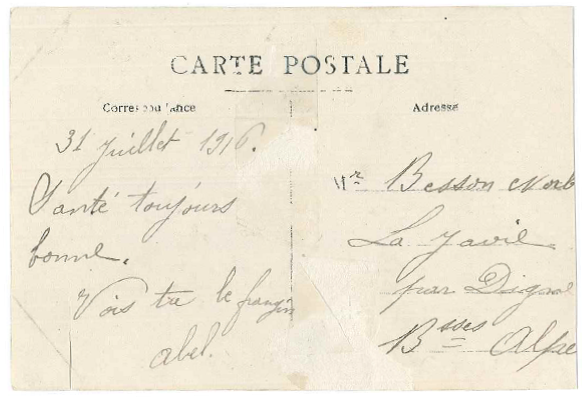 CARTE POSTALE
Correspondance
Adresse
31 juillet 1916.
Santé toujours
bonne.
le frangin
abel.
Mr Besson
La Javie
par Digne
Bsses Alpe